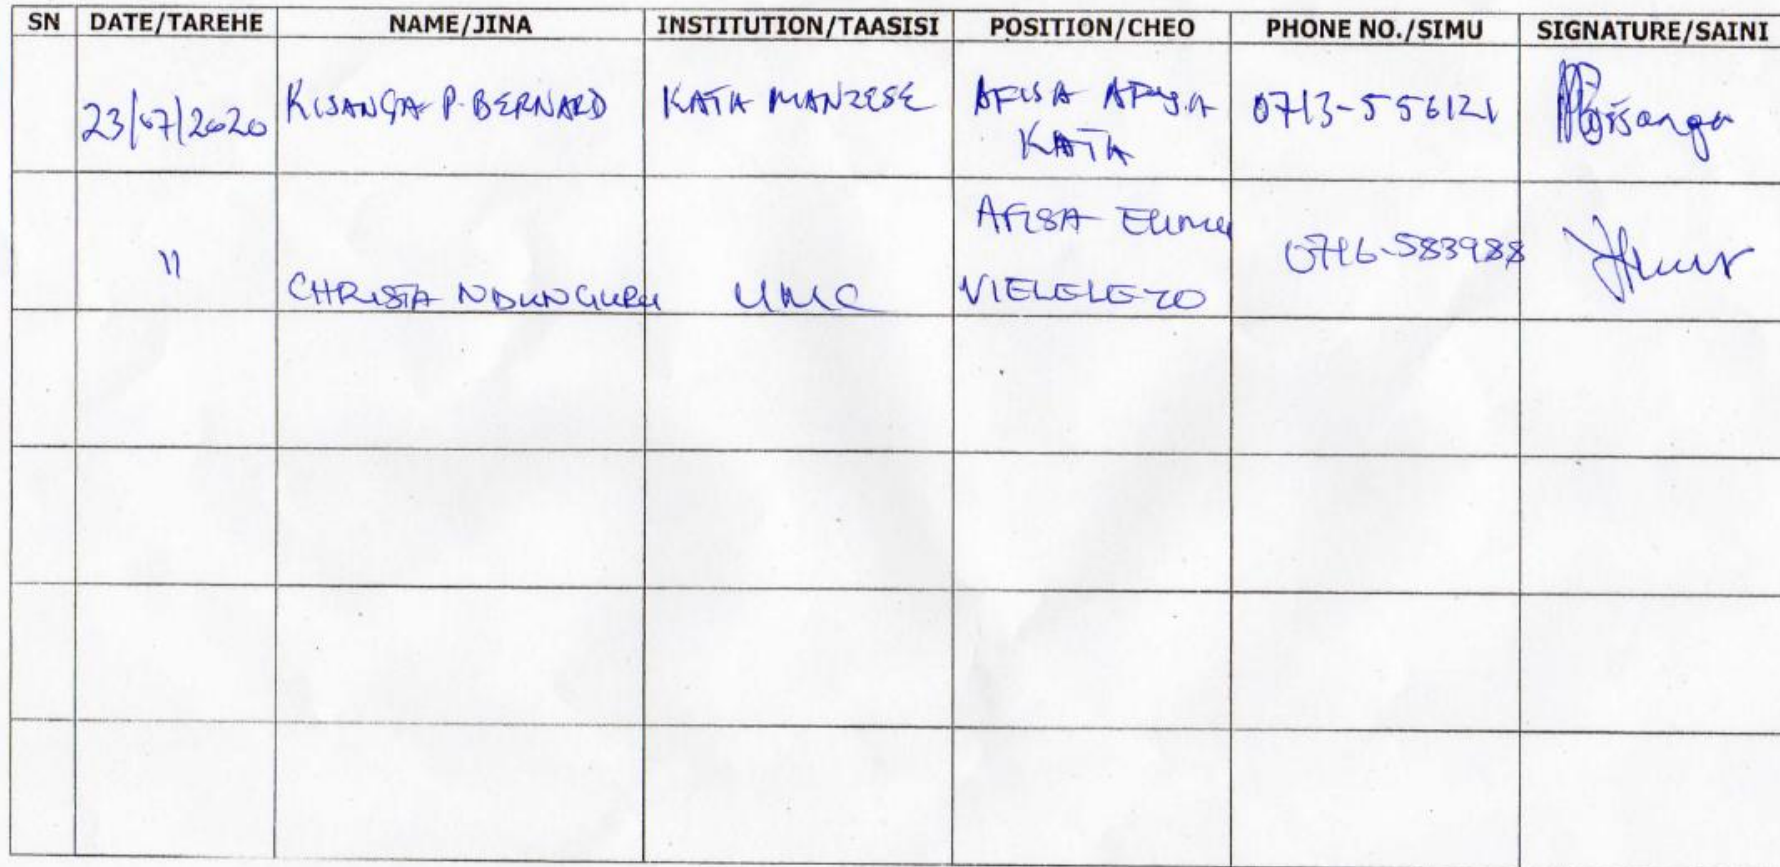 SN DATE/TAREHE NAME/JINA INSTITUTION/TAASISI POSITION/CHEO PHONE NO./SIMU SIGNATURE/SAINI
23/07/2020 KISANGA P. BERNARD KATA MANZESE AFISA AFYA 0713-556121 PBKisanga
KATA
AFISA ELIMU
" CHRISTA NDUNGURU UMC VIELELEZO 0716-583988